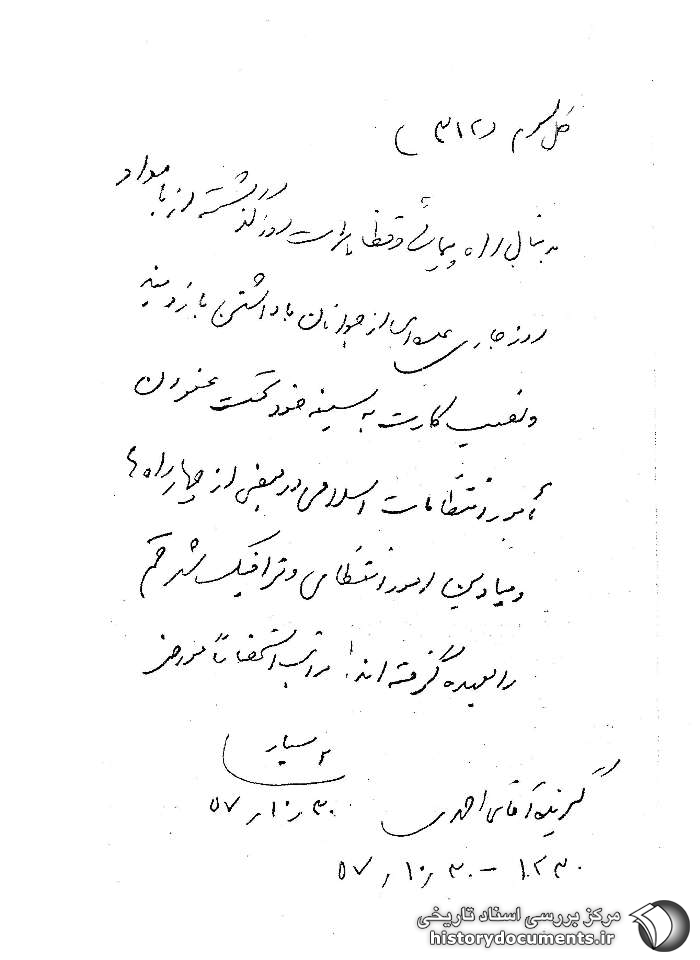 کل سوم (۳۱۲)
بدنبال راه پیمائی و تظاهرات روز گذشته از بامداد
روز جاری عده‌ای از جوانان با داشتن بازوبند
و نصب کارت به سینه خود تحت عنوان
مأمور انتظامات اسلامی در بعضی از چهارراه‌ها
و میادین امور انتظامی و ترافیک شهر قم
را بعهده گرفته‌اند. مراتب استحضاراً معروض
سیار
۵۷٫۱۰٫۳۰
گیرنده آقای احمدی
۱۰۳۰ - ۵۷٫۱۰٫۳۰
مرکز بررسی اسناد تاریخی
historydocuments.ir